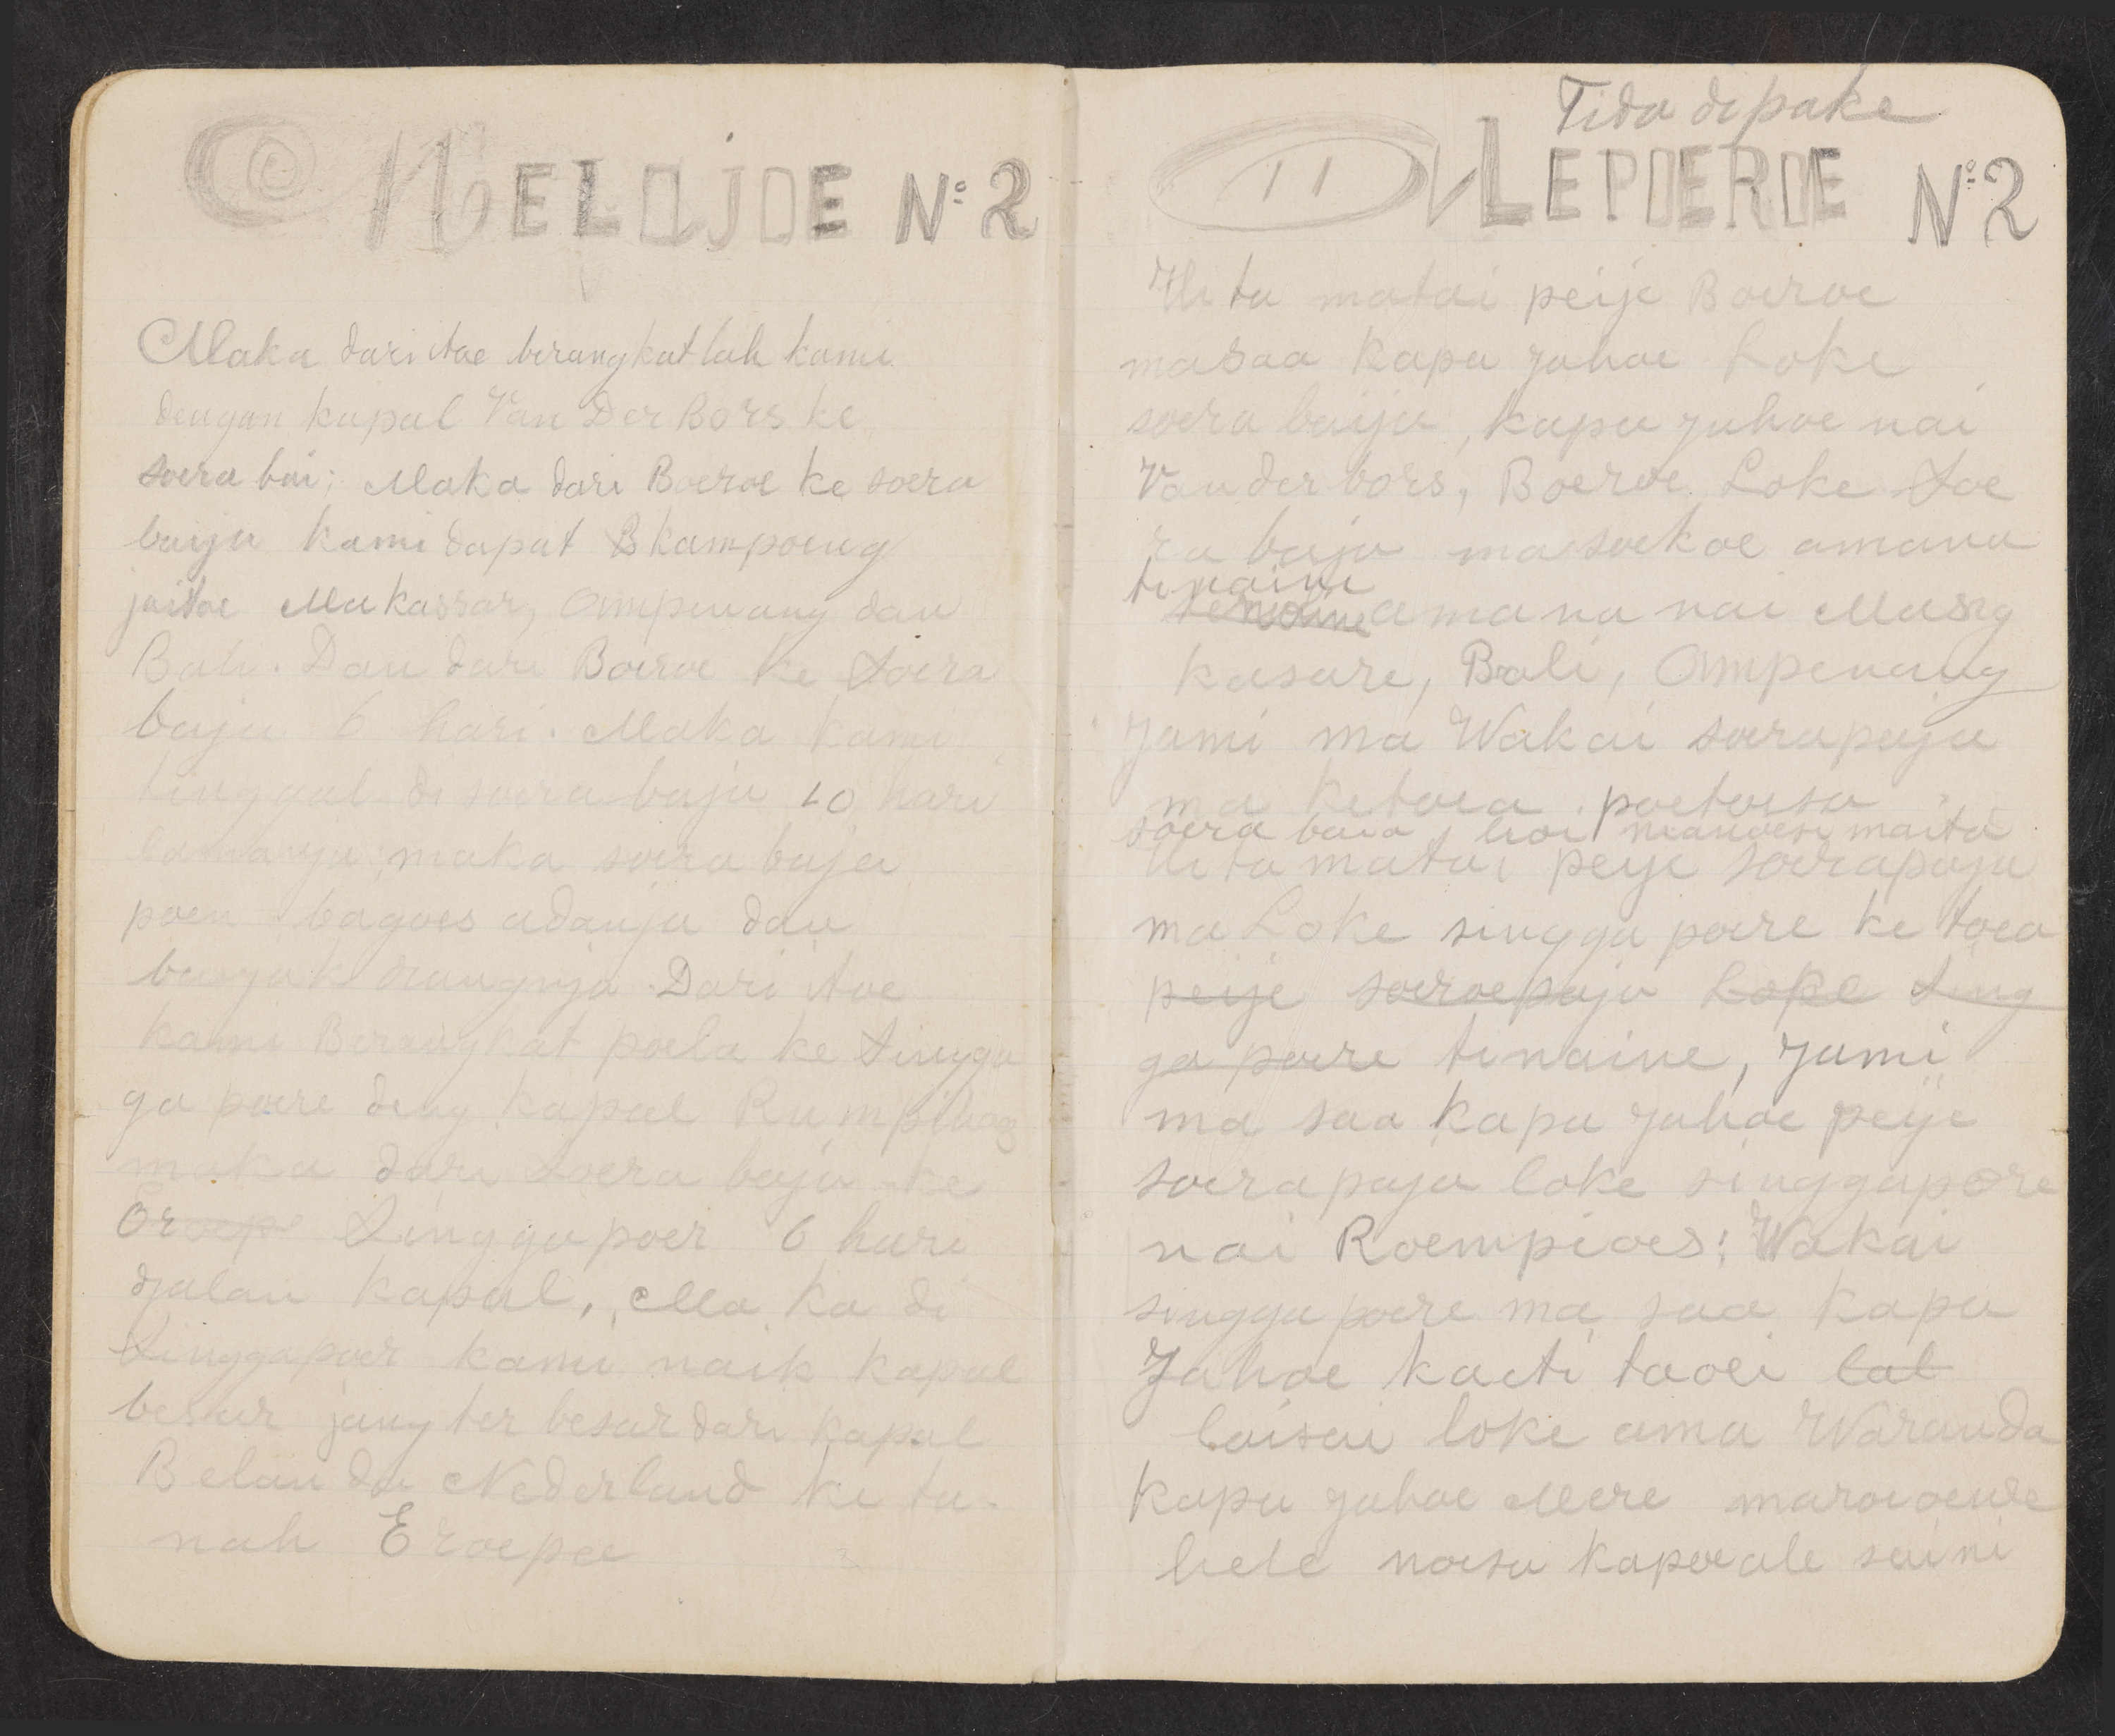 MELAJOE No 2
Maka dari itoe berangkatlah kami
dengan kapal Van Der Bors ke
soera bai; Maka dari Boeroe ke soera
baija kami dapat 3 kampoeng
jaitoe Makassar, Ampenang dan
Bali. Dan dari Boeroe ke Soera
baja 6 hari. Maka kami
tinggal di soera baja 10 hari
lamanja; maka soera baja
poen bagoes adanja dan
banjak orangnja. Dari itoe
kami Berangkat poela ke Singga
ga poere deng kapal Rumpihoes
maka dari Soera baja ke
Eroepe Singgapoer 6 hari
djalan kapal. Maka di
Singgapoer kami naik kapal
besar jang ter besar dari kapal
Belanda Nederland ke ta-
nah Eroepa
Tida dipake
11 LEPOEROE No 2
Ili ta matai peije Boeroe
masaa kapa jahoe Loke
soera baija, kapa jahoe nai
Van der bors, Boeroe Loke Soe
ra baja masoekoe amana
tinaine
amana nai Masig
kasare, Bali, Ampenang
Jami ma Wakai soerapaja
ma ketoea poetoesa
soera baia, hoi manoesi maita
Ili ta matai peije soerapaja
ma Loke singga poere ke toea
peije soeroepaja Loke Sing
ga poere tinaine, Jami
ma saa kapa jahoe peije
soerapaja loke singgapore
nai Roempioes: Wakai
singgapoere ma saa kapa
Jahoe kaeti taoei lal
laisai loke ama Waranda
kapa jahoe Mere maroeoewe
hele noesa kapoeale saini